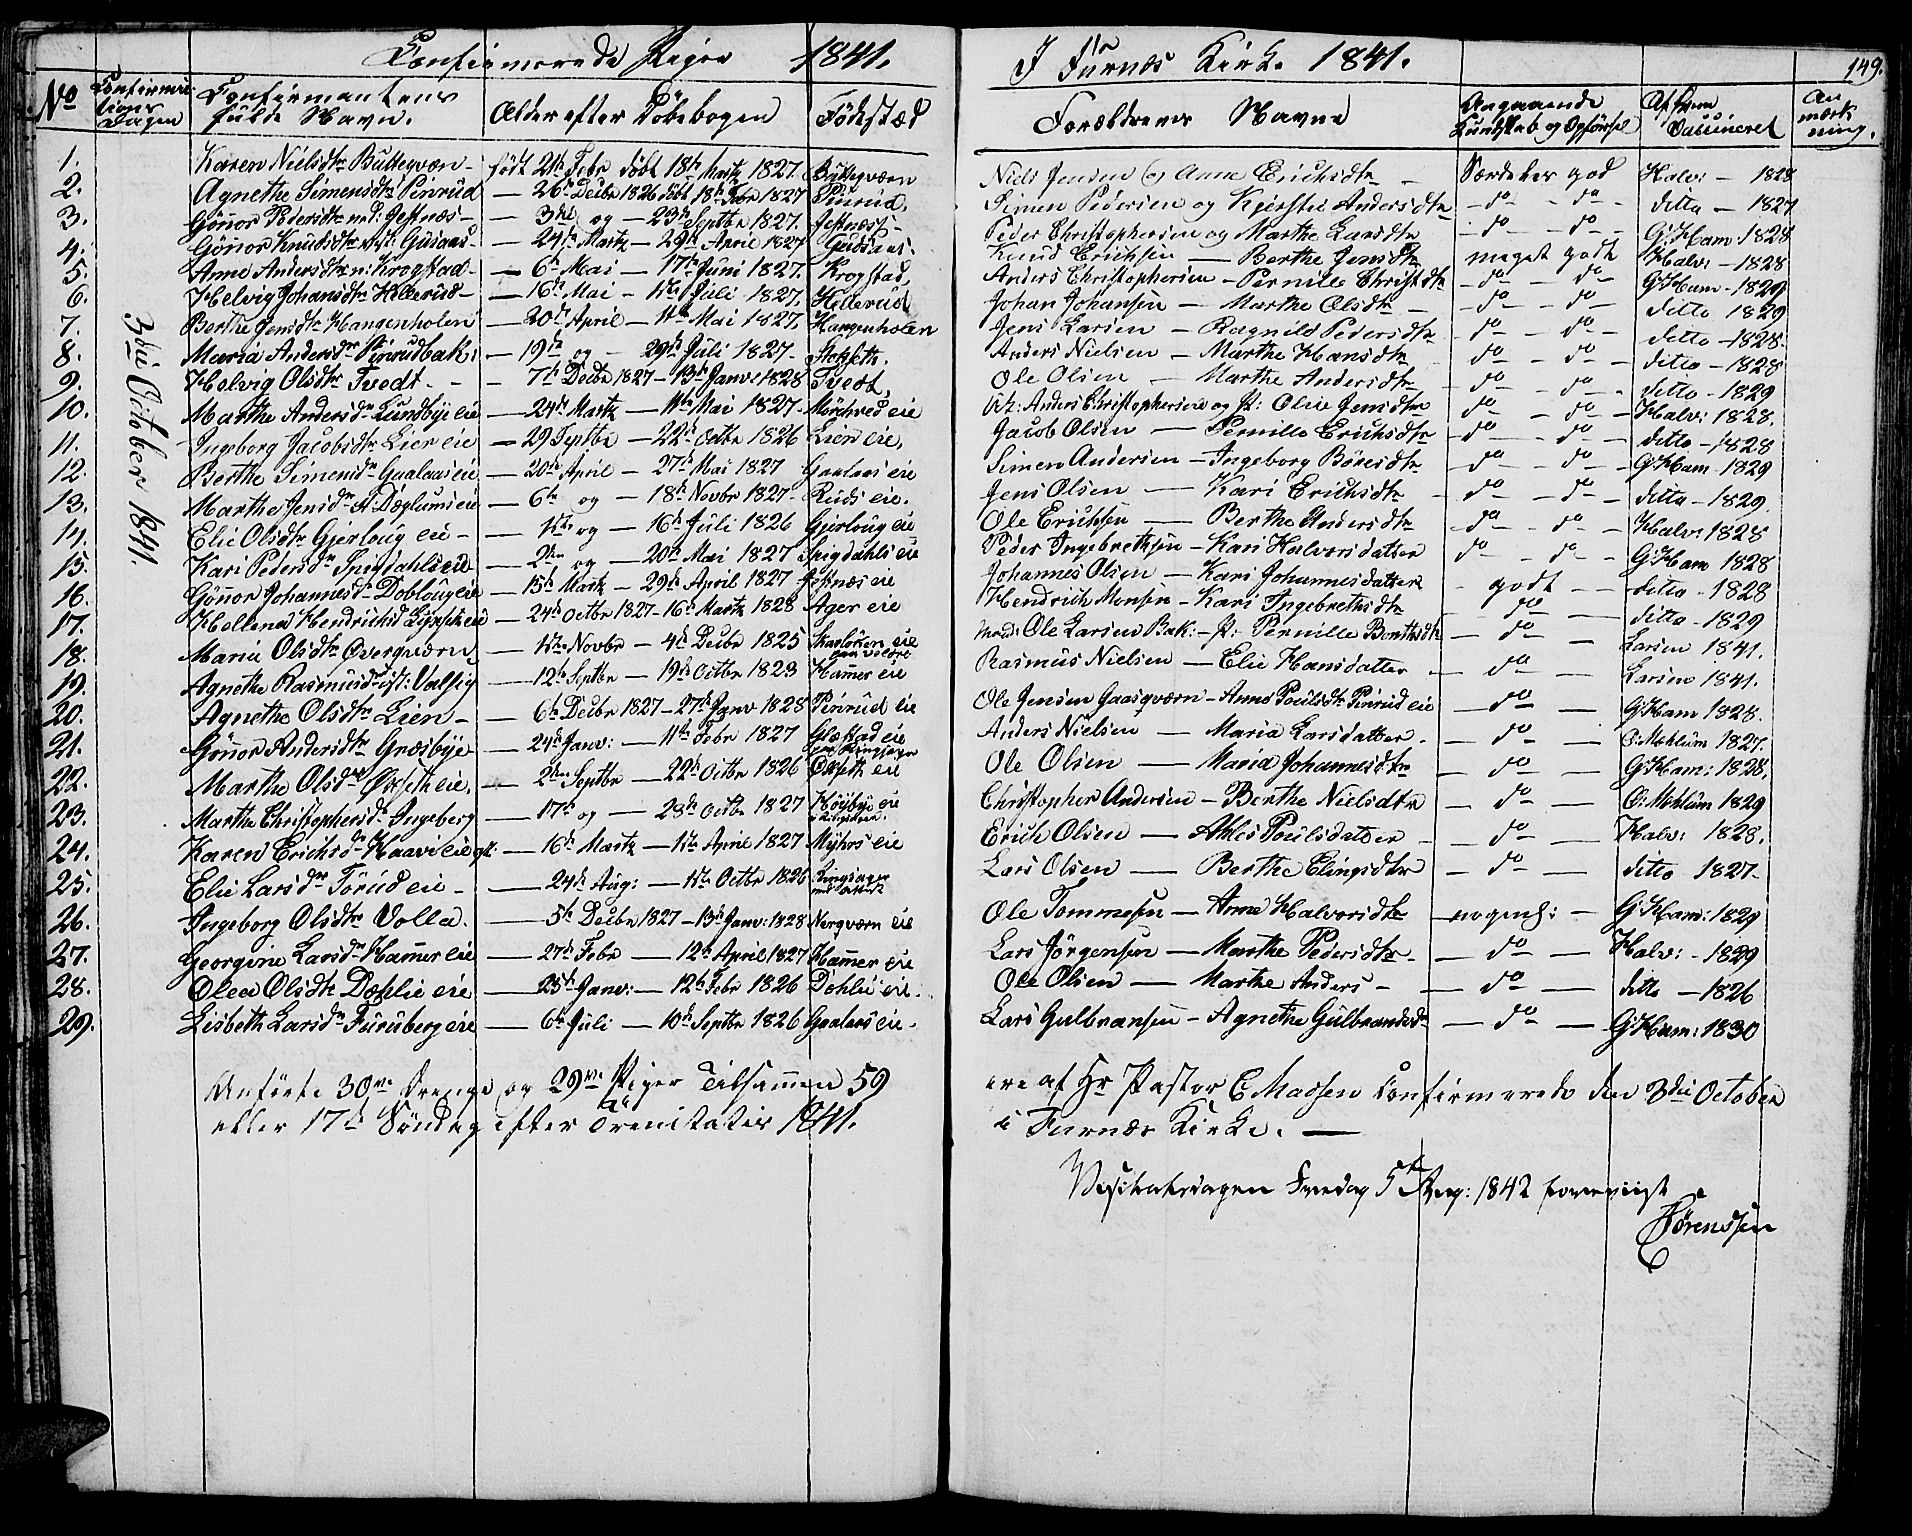 Confirmerede Piger 1841.
I Furnæs Kirke 1841.
149.
No
Confirmations Dagen
Confirmantens fulde Navn.
Alder efter Döbebogen
Födestæd
Forældrenes Navne
Angaaende Kundskab og Opförsel
Af hvem Vaccineret
Anmærkning.
3die October 1841.
1. Karen Nielsdtr Butteqværn - födt 21de Febr döbt 18de Martz 1827. Butteqværn Niels Jensen og Anne Erichsdtr - Særdeles god Halv: - 1828
2. Agnethe Simensdtr Pinrud - 26de Decbr 1826 döbt 18de Febr 1827 Pinrud. Simen Pedersen og Kjerstie Andersdtr - do - do - ditto - 1827
3. Gönnor Pedersdtr n: Jessnæs - 3die og - 23de Septbr 1827. Jessnæs - Peder Christophersen og Marthe Larsdtr - do - do - G: Ham: 1828
4. Gönnor Knudsdtr Gusaas - 24de Martz - 29de April 1827 Gudsaas - Knud Erichsen - Berthe Jensdtr meget godt Halv: - 1828
5. Anne Andersdtr n: Krogstad - 6te Mai - 17de Juni 1827. Krogstad, Anders Christophersen - Pernille Christdtr - do - do - G: Ham - 1829
6. Helvig Johansdtr Hellerud - 16de Mai - 1ste Juli 1827, Hellerud Johan Johansen - Marthe Olsdtr - do - do ditto 1829
7. Berthe Jensdtr Hangenholen - 20de April - 11te Mai 1827. Hangenholen Jens Larsen - Ragnild Pedersdtr - do - do - ditto - 1828 -
8. Maria Andersdtr Pinrudbak: - 19de og - 29de Juli 1827 - Stokseth. Anders Nielsen - Marthe Hansdtr - do - do - ditto - 1828
9. Helvig Olsdtr Tvedt - - 7de Decbr 1827 - 13de Janv: 1828 Tvedt, Ole Olsen - Marthe Andersdtr - do - do - ditto - 1829
10. Marthe Andersdr Lundbye eie - 24de Martz - 11te Mai 1827. Mörkved eie Anders Christophersen og p: Olea Jensdtr - do - do - Halv: 1828.
11. Ingeborg Jacobsdtr Lier eie - 29 Septbr - 22de Octbr 1826 Lien eie, Jacob Olsen - Pernille Erichsdtr - do - do - ditto - 1828
12. Berthe Simensdr Gaalaas eie - 20de April - 27de Mai 1827 Gaalaas eie Simen Andersen - Ingeborg Böresdtr - do - do - G: Ham - 1829
13. Marthe Jensdr N: Dæglum eie - 6te og - 18de Novbr 1827 - Ruds eie. Jens Olsen - Kari Erichsdtr - do - do - ditto - 1829.
14. Elie Olsdtr Gjerloug eie - - 1ste og - 16de Juli 1826 Gjerloug eie Ole Erichsen - Berthe Andersdtr - do - do - Halv: 1828
15. Kari Pedersdr Spigdahls eie - 2den og - 20de Mai 1827 Spigdahls eie Peder Ingebrethsen - Kari Halvorsdatter - do - do - G: Ham 1828
16. Gönnor Johannesd: Dobloug eie - 15de Martz - 29de April 1827 Jessnæs eie Johannes Olsen - Kari Johannesdatter - godt - - ditto - 1828
17. Hellena Hendrichsd eie - 24de Octbr 1827 - 16de Martz 1828 Ager eie Hendrich Monsen - Kari Ingebrethsdtr - do - ditto - 1829
18. Marie Olsdtr Överqværn - 1ste Novbr - 4de Decbr 1825 eie Ole Larsen Bak: - p: Pernille Bernthsdtr - do - Larsen 1841.
19. Agnethe Rasmusdtr Valsig - 12te Septbr - 19de Octbr 1823 Hammer eie Rasmus Nielsen - Elie Hansdatter - do - Larsen 1841.
20. Agnethe Olsdtr Lien - - 6te Decbr 1827 - 27de Janv 1828 Pinrud eie Ole Jensen Gaasqværn - Anne Poulsdtr Pinrud eie - do - G: Ham 1828.
21. Gönnor Andersdtr Græsbye - 24de Janv: - 11te Febr 1827 eie Anders Nielsen - Maria Larsdatter - do - O: Mehlum 1827.
22. Marthe Olsdtr Öxseth eie, - 2den Septbr - 22de Octbr 1826 Öxseth eie Ole Olsen - Maria Johannesdtr - do - G: Ham: 1828,
23. Marthe Christophersd: Ingeberg - 17de og - 28de Octbr 1827 Höybye eie Ringsager. Christopher Andersen - Berthe Nielsdtr - do - O: Mehlum 1829
24. Karen Erichsdr Haavi eie - 16de Martz - 1ste April 1827 Myhrs eie Erich Olsen - Ahles Poulsdatter - do - Halv: 1828.
25. Elie Larsdr Törud eie - - 24de Aug: - 1ste Octbr 1826 Ringsager Lars Olsen - Berthe Elingsdtr - do - ditto 1827 -
26. Ingeborg Olsdtr Volla. - 5te Decbr 1827 - 13de Janv: 1828 Norqværn eie Ole Tommesen - Anne Halvorsdtr - nogenl: - G: Ham: 1829
27. Georgine Larsdr Hammer eie - 27de Febr - 12te April 1827 Hammer eie Lars Jörgensen - Marthe Pedersdtr - - do - Halv: - 1829
28. Olea Olsdtr Dæhlie eie - 25de Janv: - 12te Febr 1826 Dehlie eie. Ole Olsen - Marthe Anders - - do - ditto - 1826
29. Lisbeth Larsdr Furuberg eie - 6te Juli - 10de Septbr 1826 Gaalaas eie. Lars Gulbransen - Agnethe Gulbrandsdr - do - G: Ham: 1830
Anförte 30ve Drenge og 29ve Piger Tilsammen 59 ere af Hr Pastor C Madsen Confirmerede den 3die October
eller 17de Söndag efter Trenitatis 1841. i Furnæs Kirke. -
Visitatsdagen Fredag 5te Aug: 1842 foreviist
Sörenssen